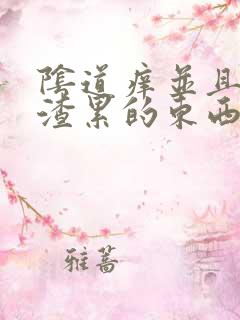 陰道痒並且
渣累的東西
雅蒿